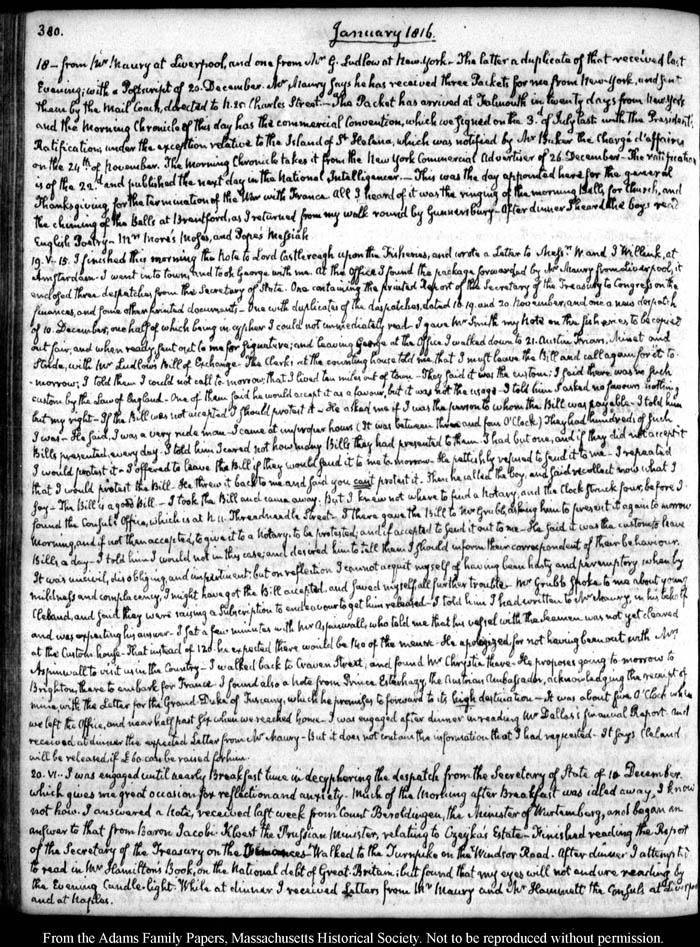 380.
January 1816.
18— from Mr Maury at Liverpool, and one from Mr G. Ludlow at New-York. The latter a duplicate of that received last
Evening; with a Postscript of 20. December. Mr Maury says he has received three Packets for me from New-York, and sent
them by the Mail Coach, directed to N. 25 Charles Street— The Packet has arrived at Falmouth in twenty days from New York
and the Morning Chronicle of this day has the commercial Convention, which we signed on the 3d of July last with the President's
Ratification, under the exception relative to the Island of St Helena, which was notified by Mr Baker the Chargé d'affaires
on the 24th of November. The Morning Chronicle takes it from the New York Commercial Advertiser of 26 December— The ratification
is of the 22d and published the next day in the National Intelligencer.— This was the day appointed here for the general
Thanksgiving for the termination of the War with France. All I heard of it was the ringing of the morning Bells for Church, and
the chiming of the Bells at Brentford, as I returned from my walk round by Gunnersbury— After dinner I heard the boys read
English Poetry— Mrs More's Moses, and Pope's Messiah
19. V. 15. I finished this morning the Note to Lord Castlereagh upon the Fisheries, and wrote a Letter to Messrs W and J Willink, at
Amsterdam. I went into town, and took George with me. At the Office I found the package forwarded by Mr Maury from Liverpool, it
enclosed three despatches from the Secretary of State. One containing the printed Report of the Secretary of the Treasury to Congress on the
finances, and some other printed documents— One with duplicates of the despatches, dated 18. 19. and 20 November, and one a new despatch
of 10. December, one half of which being in cypher I could not immediately read— I gave Mr Smith my Note on the fisheries to be copied
out fair, and when ready, sent out to me for signature; and leaving George at the Office I walked down to 21. Austin Friars, Minet and
Stride, with Mr Ludlow's Bill of Exchange. The Clerks at the counting house told me that I must leave the Bill and call again for it to
-morrow; I told them I could not call to-morrow; that I lived ten miles out of town— They said it was the custom: I said there was no such
custom by the Law of England— One of them said he would accept it as a favour, but it was not the usage— I told him I asked no favours nothing
but my right— If the Bill was not accepted I should protest it— He asked me if I was the person to whom the Bill was payable— I told him
I was— He said, I was a very rude man— I came at improper hours (It was between three and four O'Clock) They had hundreds of such
Bills presented every day— I told him I cared not how many Bills they had presented to them— I had but one, and if they did not accept it
I would protest it— I offered to leave the Bill if they would send it to me to-morrow— He pettishly refused to send it to me— I repeated
that I would protest the Bill— He threw it back to me and said you can't protest it. Then he called the boy, and said recollect now what I
say— The Bill is a good Bill— I took the Bill and came away. But I knew not where to find a Notary, and the Clock struck four, before I
found the Consul's Office, which is at N. 11. Threadneedle Street— I there gave the Bill to Mr Grubb, asking him to present it again to-morrow
Morning, and if not then accepted, to give it to a Notary, to be protested, and if accepted to send it out to me— He said it was the custom to leave
Bills a day— I told him I would not in this case; and desired him to tell them I should inform their correspondent of their behaviour.
It was uncivil, disobliging, and impertinent; but on reflection I cannot acquit myself of having been hasty and peremptory, when by
mildness and complacency, I might have got the Bill accepted, and saved myself all further trouble— Mr Grubb spoke to me about young
Cleland, and said they were raising a Subscription to endeavour to get him released— I told him I had written to Mr Maury, in his behalf
and was expecting his answer— I sat a few minutes with Mr Aspinwall, who told me that his vessel with the Seamen was not yet cleared
at the Custom house— That instead of 120 he expected there would be 140 of the men— He apologized for not having been out with Mrs
Aspinwall to visit us in the Country— I walked back to Craven Street, and found Mr Christie there— He proposes going to-morrow to
Brighton, there to embark for France. I found also a Note from Prince Esterhazy, the Austrian Ambassador, acknowledging the receipt of
mine, with the Letter for the Grand-Duke of Tuscany, which he promises to forward to its high destination— It was about five O'Clock when
we left the Office, and near half past six when we reached home— I was engaged after dinner in reading Mr Dallas's financial Report— And
received at dinner the expected Letter from Mr Maury— But it does not contain the information that I had requested— It says Cleland
will be released, if £60 can be raised for him.
20. VI— I was engaged until nearly Breakfast time in decyphering the despatch from the Secretary of State of 10 December.
which gives me great occasion for reflection and anxiety— Much of the Morning after Breakfast was idled away, I know
not how. I answered a Note, received last week from Count Beroldingen, the Minister of Wurtemberg, and began an
answer to that from Baron Jacobi Kloest the Prussian Minister, relating to Czeyka's Estate— Finished reading the Report
of the Secretary of the Treasury on the Finances— Walked to the Turnpike on the Windsor Road. After dinner I attempted
to read in Mr Hamilton's Book, on the National debt of Great Britain; but found that my eyes will not endure reading by
the Evening Candle-light. While at dinner I received Letters from Mr Maury and Mr Hammett the Consuls at Liverpool
and at Naples.
From the Adams Family Papers, Massachusetts Historical Society. Not to be reproduced without permission.